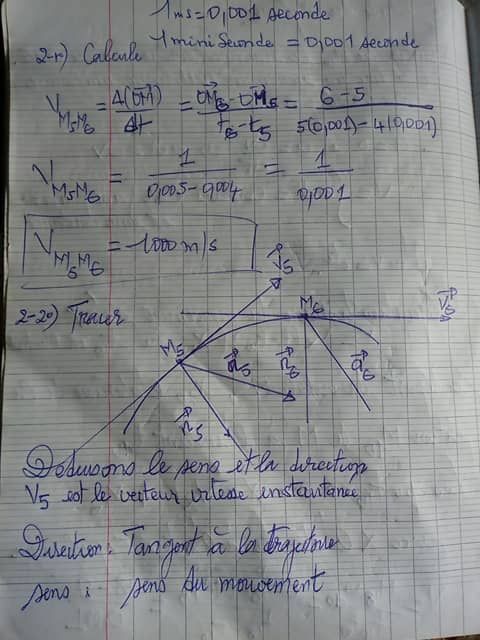 1 ms = 0,001 seconde
1 mini seconde = 0,001 seconde
2-1°) Calcule
V M₅M₆ = Δ(OM)/Δt = (OM₆ - OM₅)/(t₆ - t₅) = (6 - 5)/(5(0,001) - 4(0,001))
V M₅M₆ = 1/(0,005 - 0,004) = 1/0,001
V M₅M₆ = 1000 m/s
V₅
2-2°) Tracer
M₆
V₆
M₅
a₅
n₆
a₆
n₅
Deduisons le sens et la direction
V₅ est le vecteur vitesse instantanée
Direction : Tangent à la trajectoire
sens : sens du mouvement